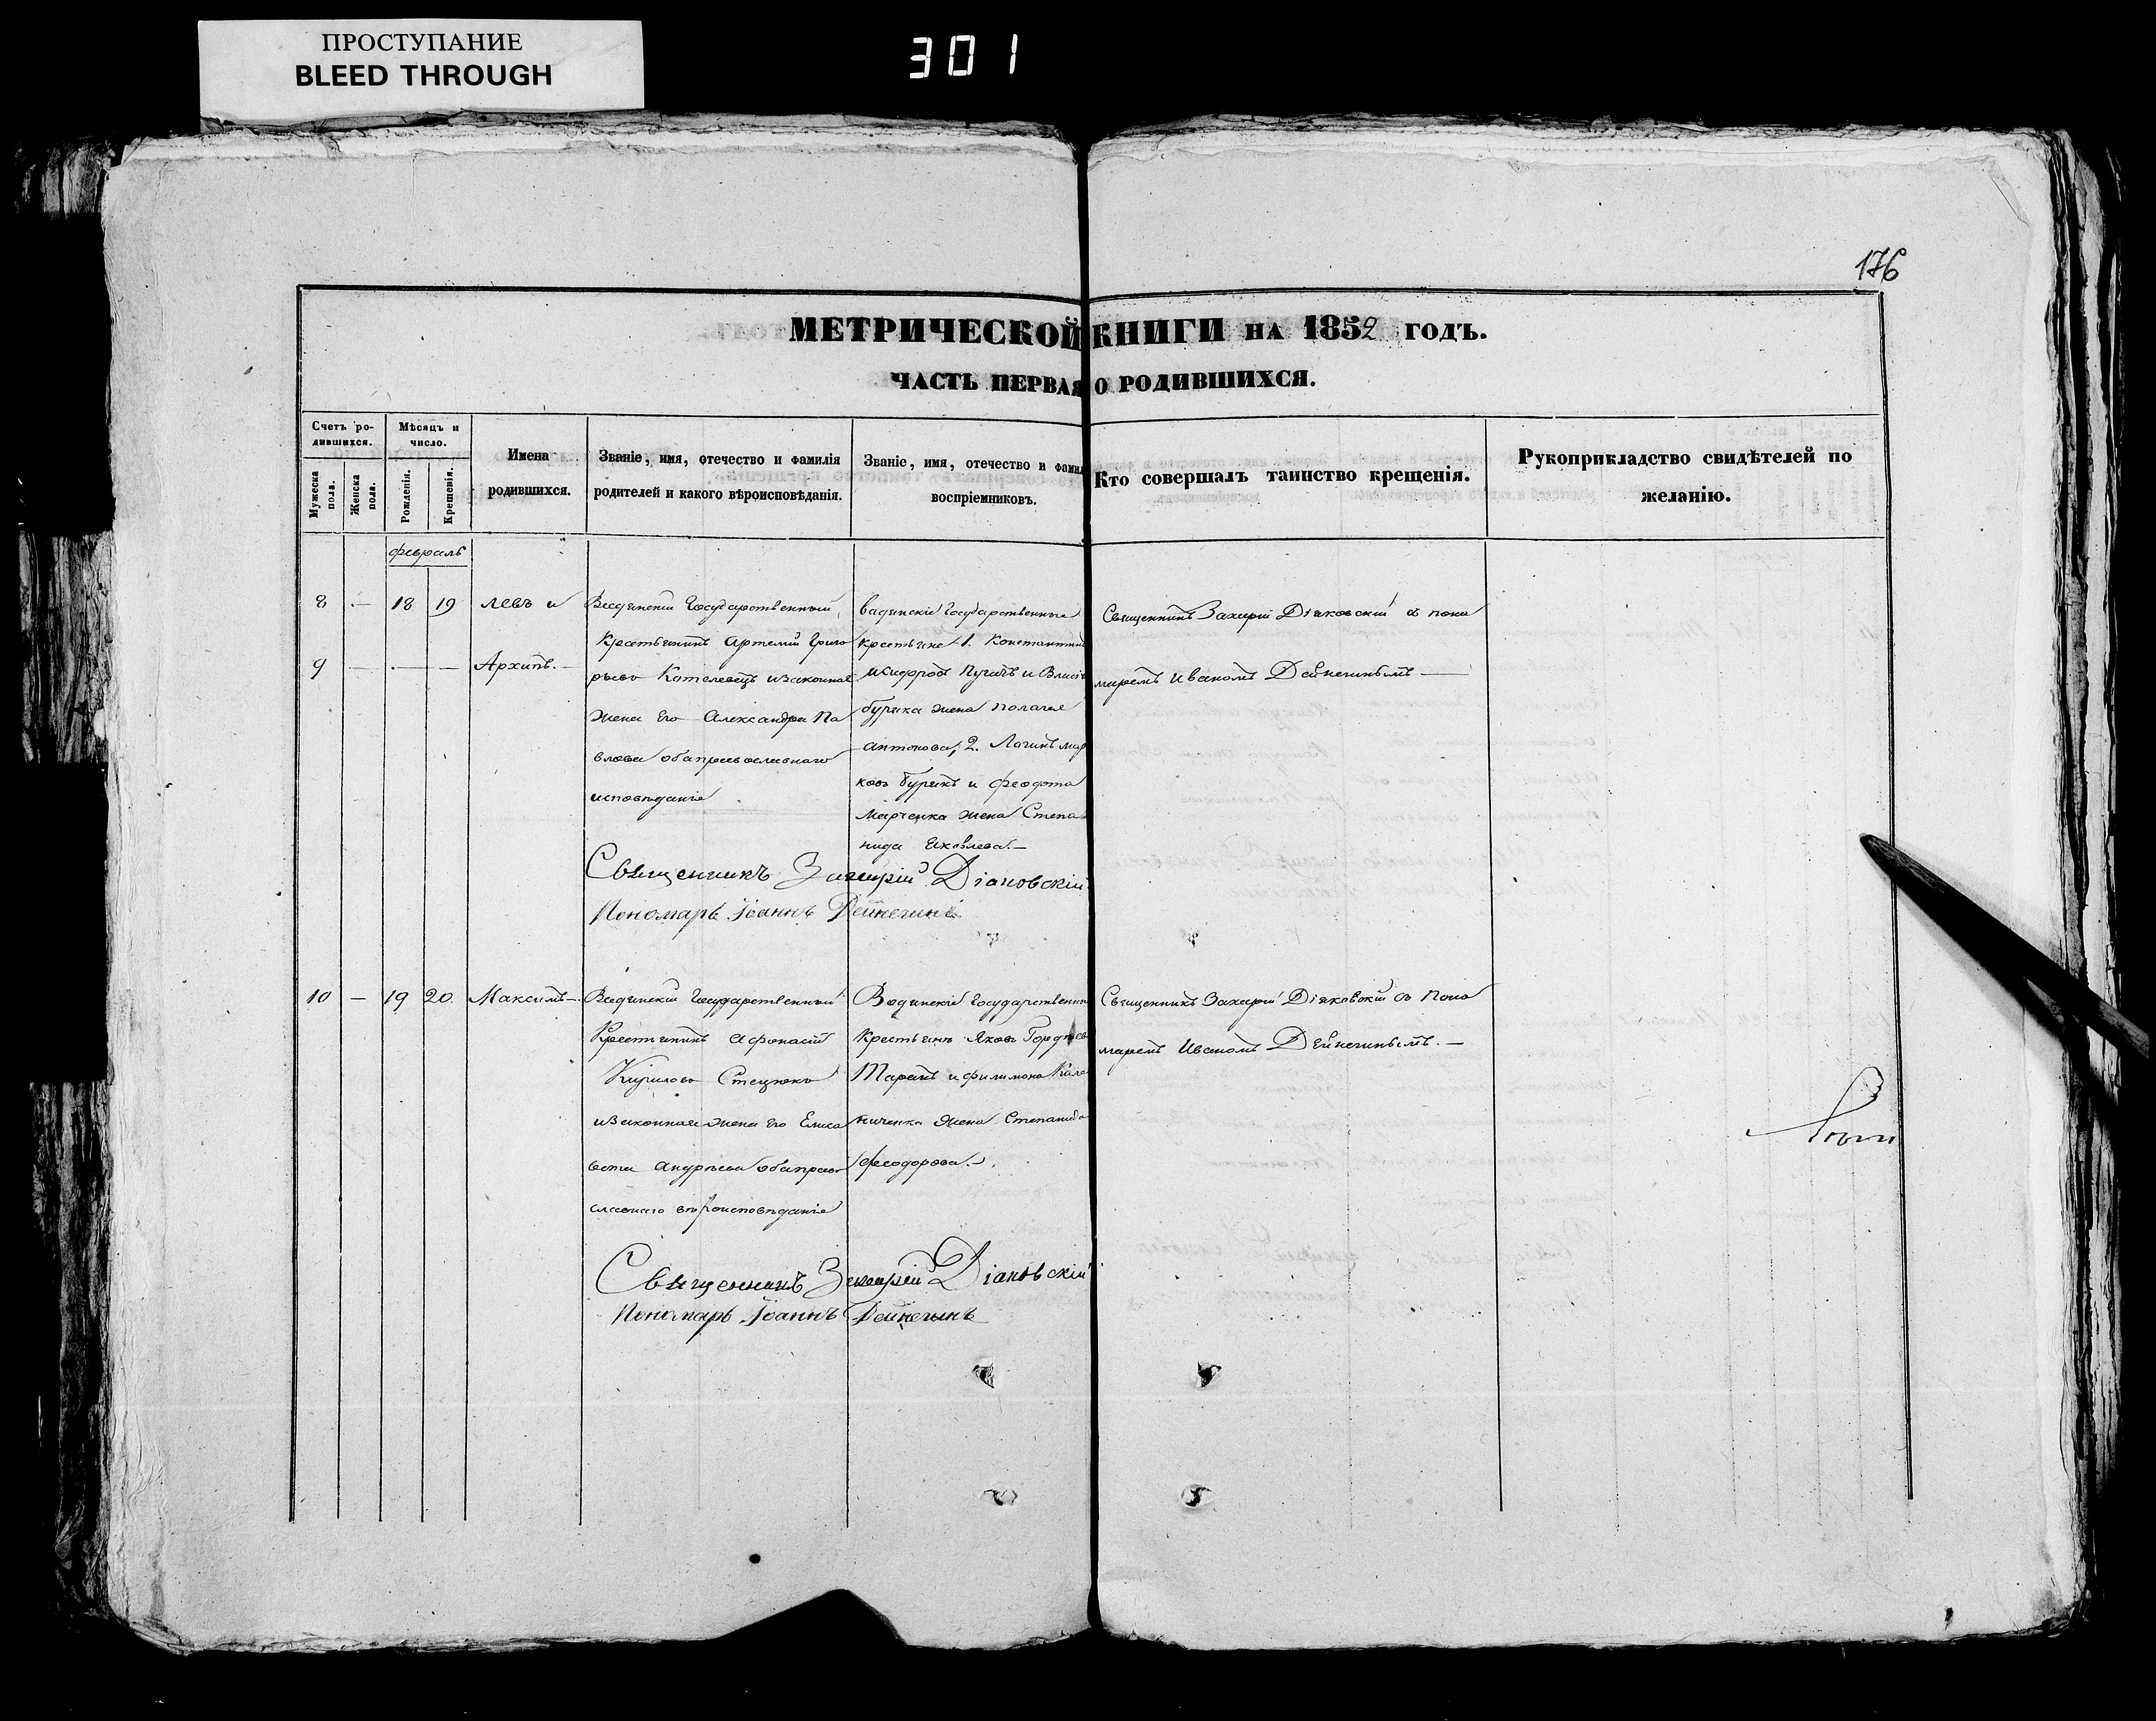 ПРОСТУПАНИЕ
BLEED THROUGH
301
176
МЕТРИЧЕСКОЙ КНИГИ НА 1852 ГОДЪ.
ЧАСТЬ ПЕРВАЯ О РОДИВШИХСЯ.
Счетъ ро-
дившихся.
Мужеска пола.
Женска пола.
Мѣсяцъ и
число.
Рожденія.
Крещенія.
Имена
родившихся.
Званіе, имя, отечество и фамилія
родителей и какого вѣроисповѣданія.
Званіе, имя, отечество и фамил
воспріемниковъ.
Кто совершалъ таинство крещенія.
Рукоприкладство свидѣтелей по
желанію.
февраль
8 — 18 19 Левъ и
9 — — — Архипъ. —
Государственный
Крестьянинъ Артемій Григо
рьевъ Котелевецъ и законная
жена его Александра Па
влова оба православнаго
исповѣданія
Государственные
крестьяне 1. Константин
Пугачъ и
буряка жена
Антонова; 2. Логинъ мар
ковъ Бурякъ и феодота
Марченка жена Степа
нида Яковлева. —
Священникъ Захарій Діяковскій съ поно
маремъ Иваномъ Дейнегинымъ —
Священникъ Захарій Діаковскій
Пономарь Іоаннъ Дейнегинъ
10 — 19 20. Максимъ —
Государственный
Крестьянинъ Афонасій
Кириловъ Стецюкъ
и законная жена его Елиса
вета Андреева оба право
славнаго вѣроисповѣданія
Государственны
Крестьянъ Яковъ Гордѣев
Таранъ и филимона Кале
ниченка жена Степанида
феодорова. —
Священникъ Захарій Діяковскій съ Поно
маремъ Иваномъ Дейнегинымъ. —
Священникъ Захарій Діаковскій
Пономарь Іоаннъ Дейнегинъ